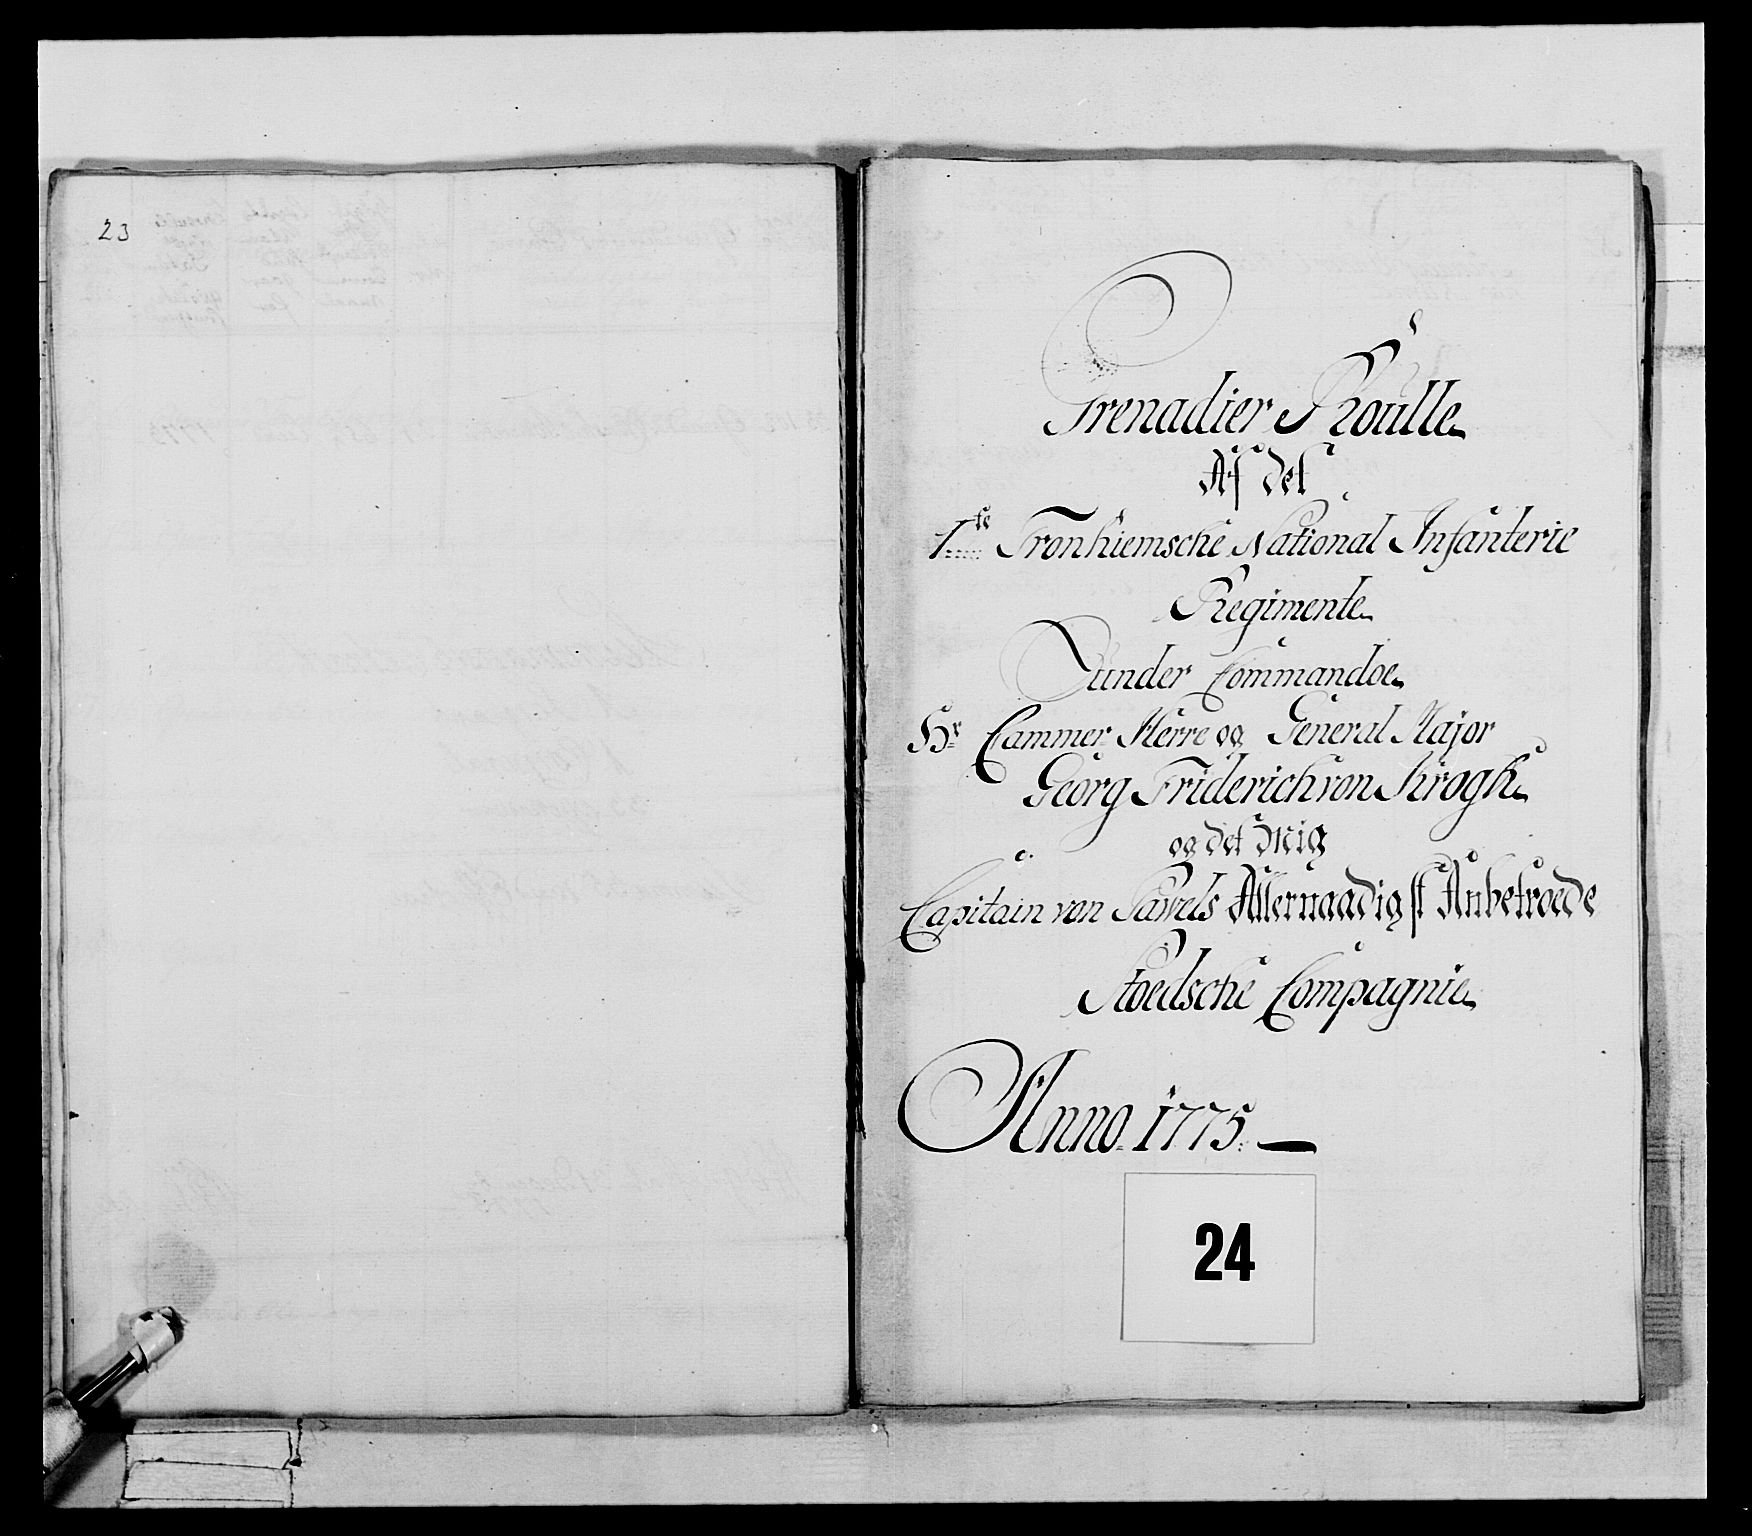 23
Grenadier Roulle
Af det
1ste Tronhiemsche National Infanterie
Regimente
under Commandoe
Hr Cammer Herre og General Major
Georg Friderich von Krogh
og det Mig
Capitain von Pawels Allernaadigst Anbetroede
Stoedsche Compagnie
Anno 1775
24